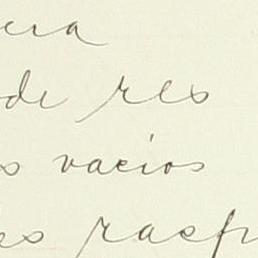 era
de res
s vacios
es raspa